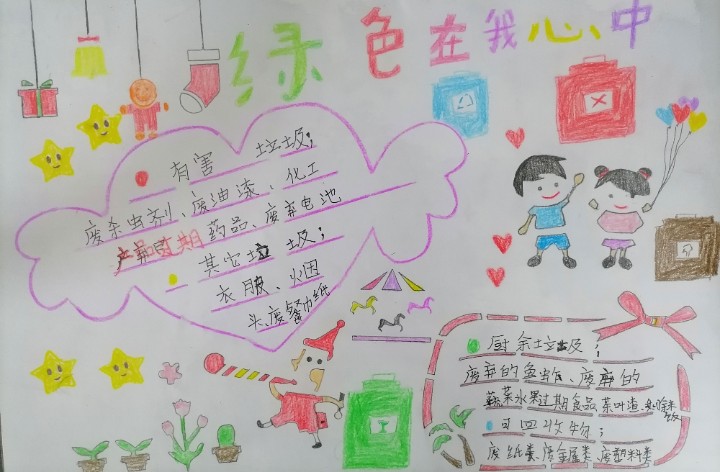 绿色在我心中
有害垃圾；
废杀虫剂、废油漆、化工
产和过期药品、废弃电池
其它垃圾；
衣服、烟
头、废餐巾纸
厨余垃圾；
废弃的鱼虾、废弃的
蔬菜水果过期食品茶叶渣、剩余米饭
可回收物；
废纸类、废金属类、废塑料类